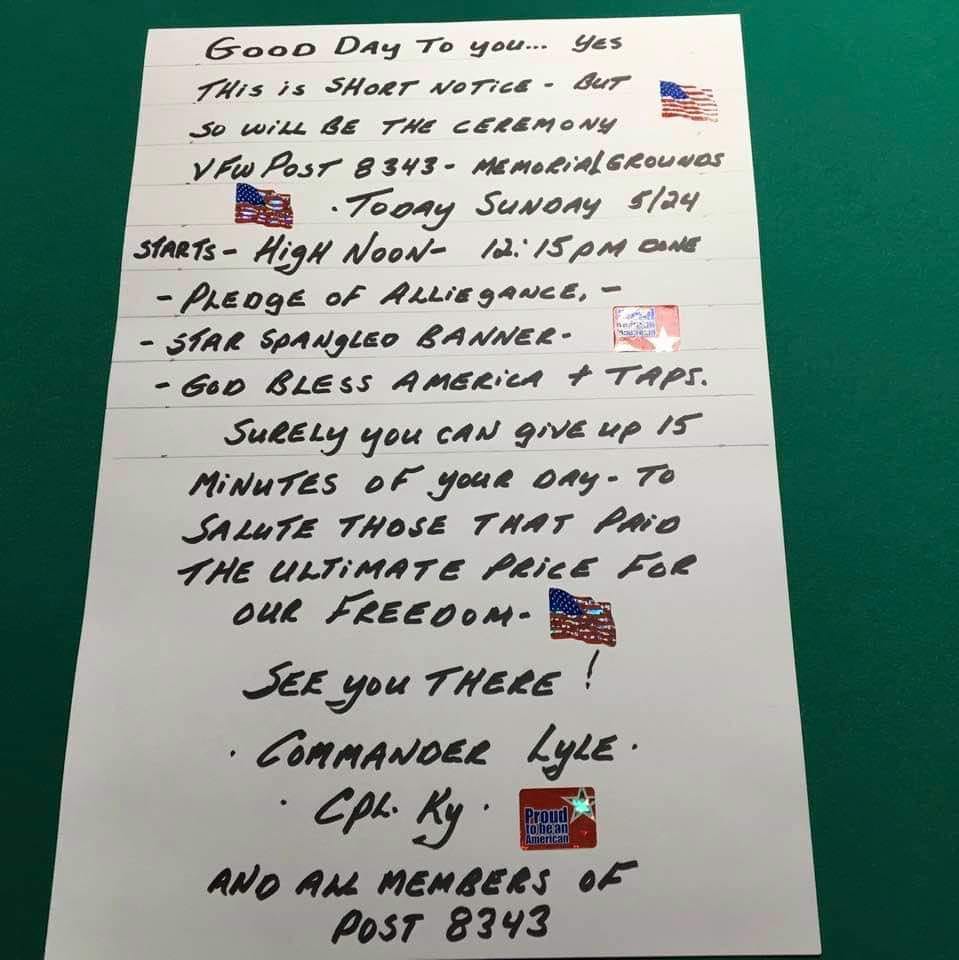 GOOD DAY TO YOU... YES
THIS IS SHORT NOTICE - BUT
SO WILL BE THE CEREMONY
VFW POST 8343 - MEMORIAL GROUNDS
· TODAY SUNDAY 5/24
STARTS - HIGH NOON - 12:15 PM DONE
- PLEDGE OF ALLIEGANCE, -
- STAR SPANGLED BANNER -
- GOD BLESS AMERICA + TAPS.
SURELY YOU CAN GIVE UP 15
MINUTES OF YOUR DAY - TO
SALUTE THOSE THAT PAID
THE ULTIMATE PRICE FOR
OUR FREEDOM -
SEE YOU THERE !
· COMMANDER LYLE ·
· CPL. KY ·
Proud
to be an
American
AND ALL MEMBERS OF
POST 8343